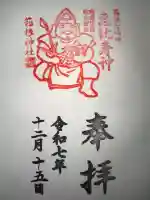 恵比寿神
奉拝
令和七年
十二月十五日